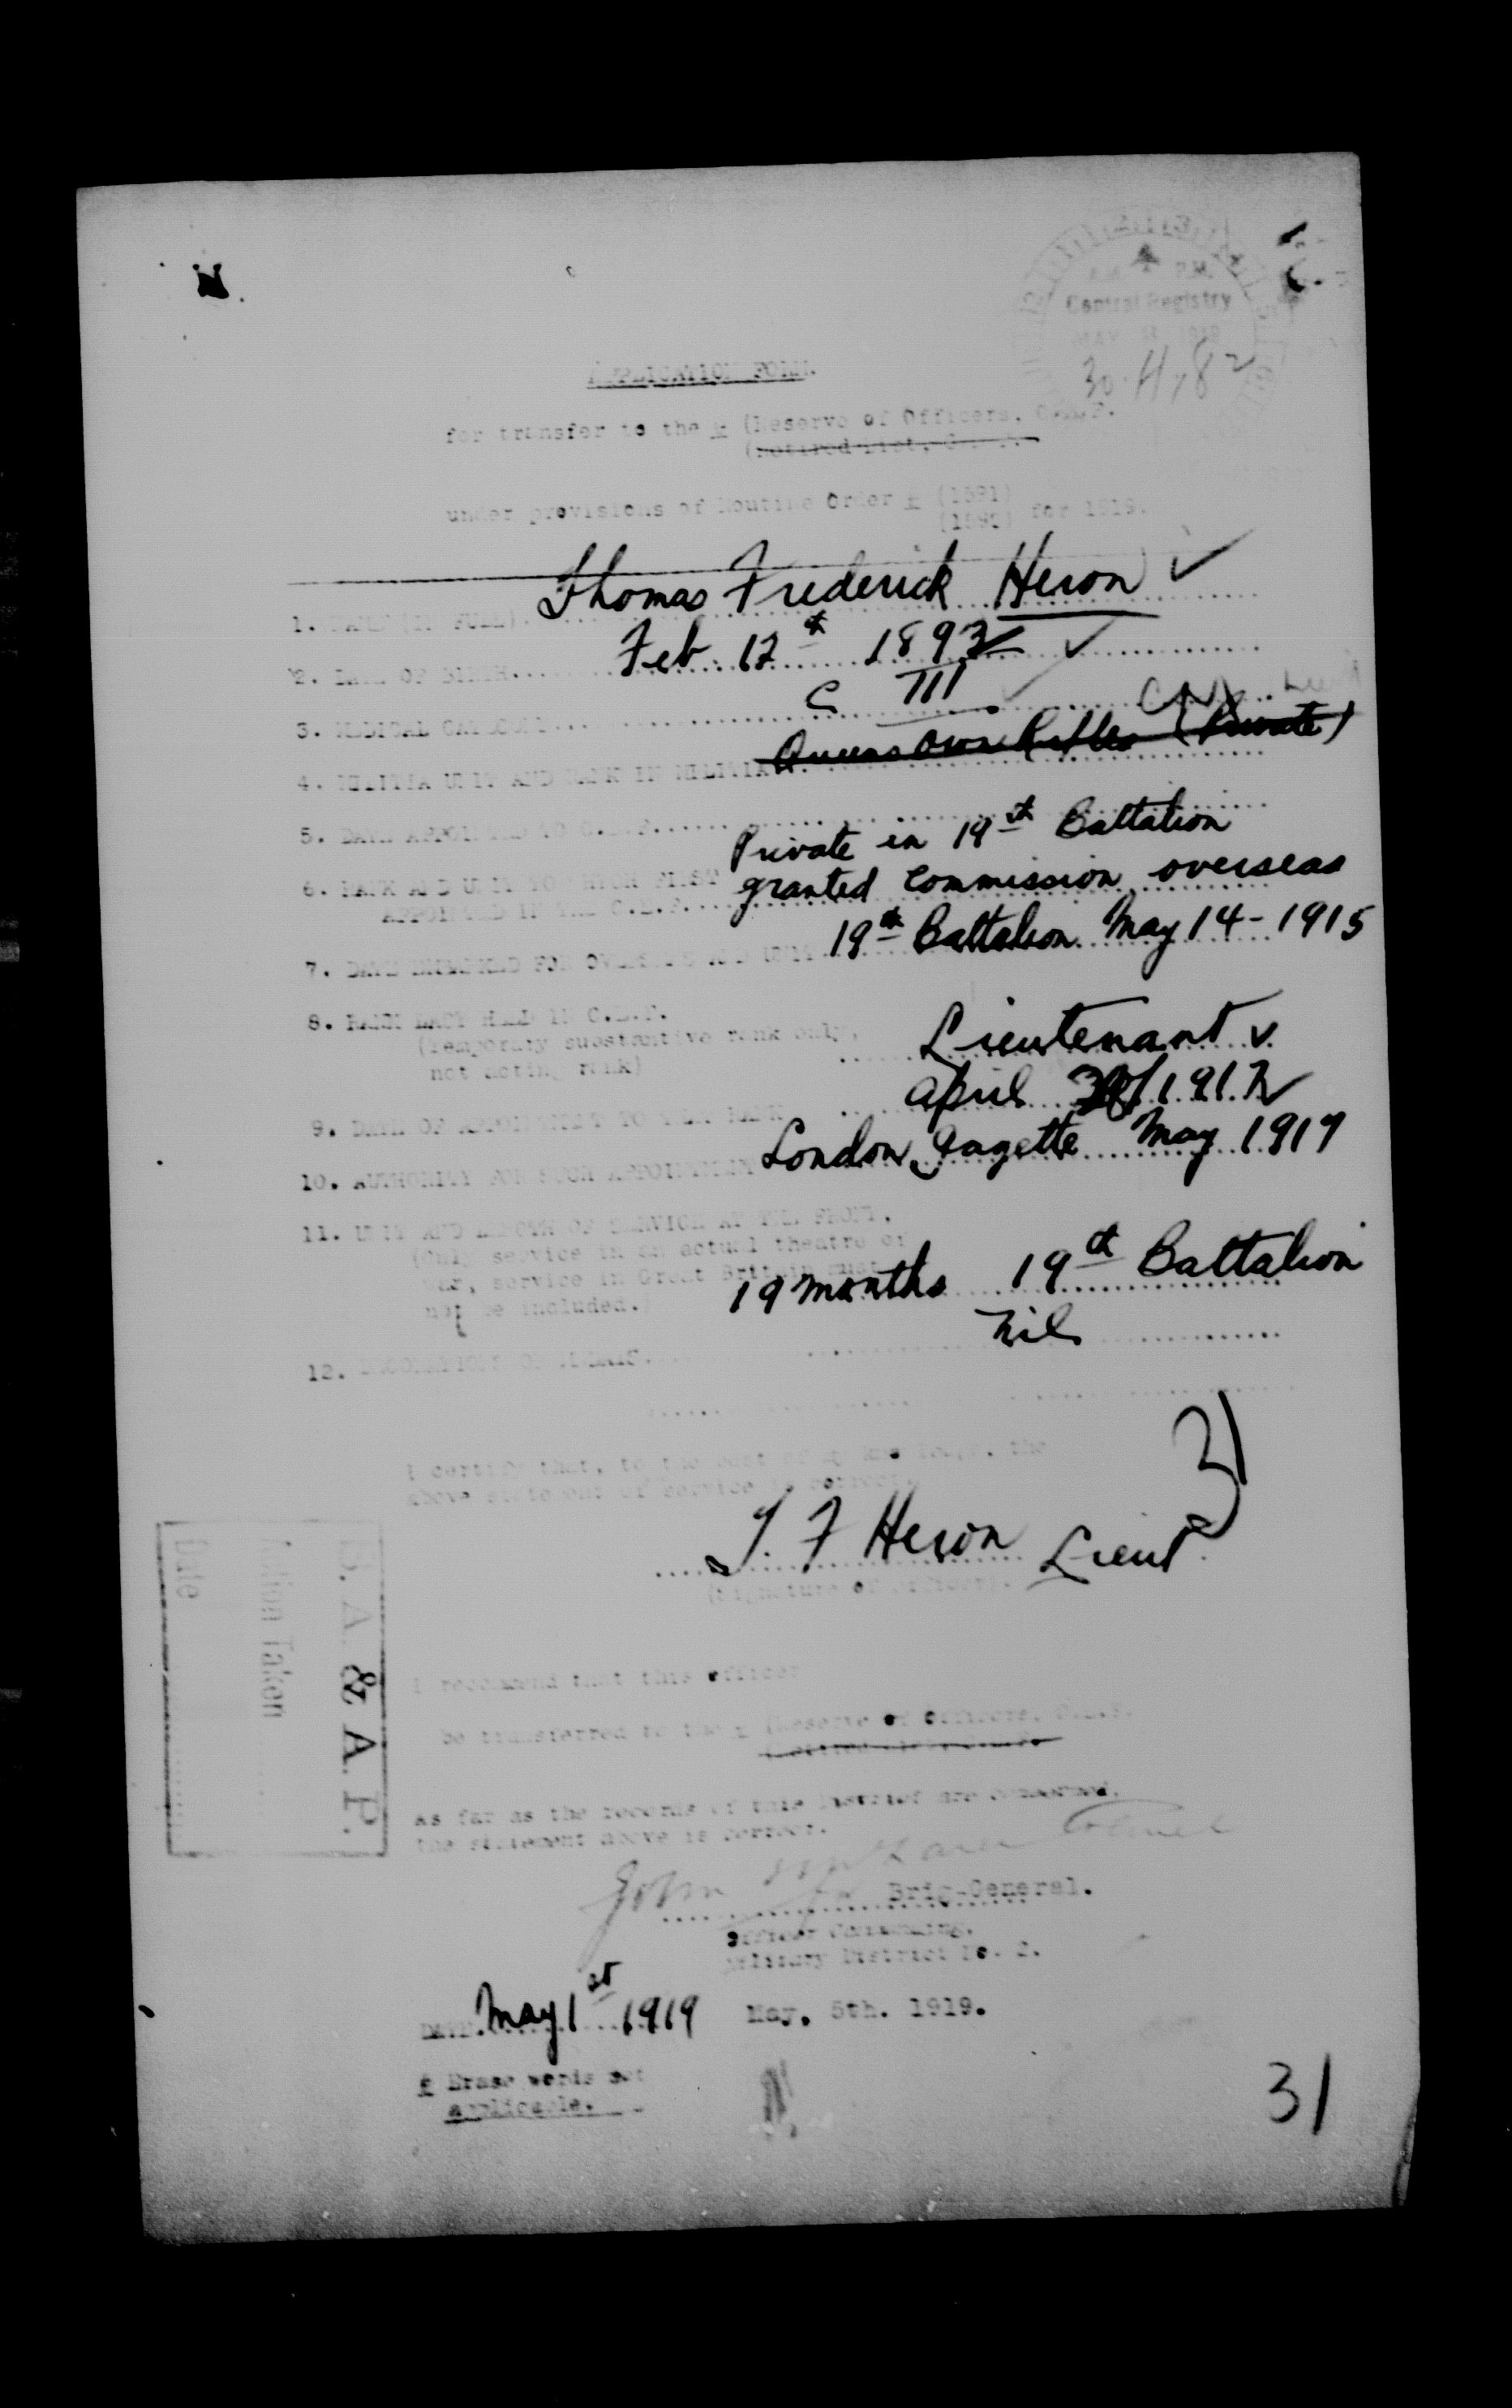 P.M.
Central Registry
MAY 1919
30.
APPLICATION FORM.
for transfer to the (Reserve of Officers, C.E.F.
(Retired List, C.E.F.
under provisions of Routine Order (1691) for 1919.
1. NAME (IN FULL) Thomas Frederick Heron
2. DATE OF BIRTH Feb. 12th
3. MEDICAL CATEGORY C III
4. MILITIA UNIT AND RANK IN MILITIA Queens Own Rifles (Private)
5. DATE APPOINTED TO C.E.F.
6. RANK AND UNIT TO WHICH FIRST Private in 19th Battalion
APPOINTED IN THE C.E.F. granted commission overseas
7. DATE EMBARKED FOR OVERSEAS AND UNIT 19th Battalion May 14 - 1915
8. RANK LAST HELD IN C.E.F.
(Temporary substantive rank only,
not acting rank) Lieutenant
9. DATE OF APPOINTMENT TO THAT RANK April 1917
10. AUTHORITY FOR SUCH APPOINTMENT London Gazette May 1917
11. UNIT AND LENGTH OF SERVICE AT THE FRONT,
(Only service in an actual theatre of
war, service in Great Britain must
not be included.) 19 months 19th Battalion
12. DECORATIONS OR MEDALS. Nil
I certify that, to the best of my knowledge, the
above statement of service is correct.
T. F Heron Lieut
(Signature of Officer).
I recommend that this officer
be transferred to the (Reserve of Officers, C.E.F.
(Retired List, C.E.F.
As far as the records of this District are concerned,
the statement above is correct.
John Colonel
Brig-General.
Officer Commanding,
Military District No. 2.
DATE. May 1st 1919 May, 5th. 1919.
Erase words not
applicable.
31
& A. P.
Action Taken
Date